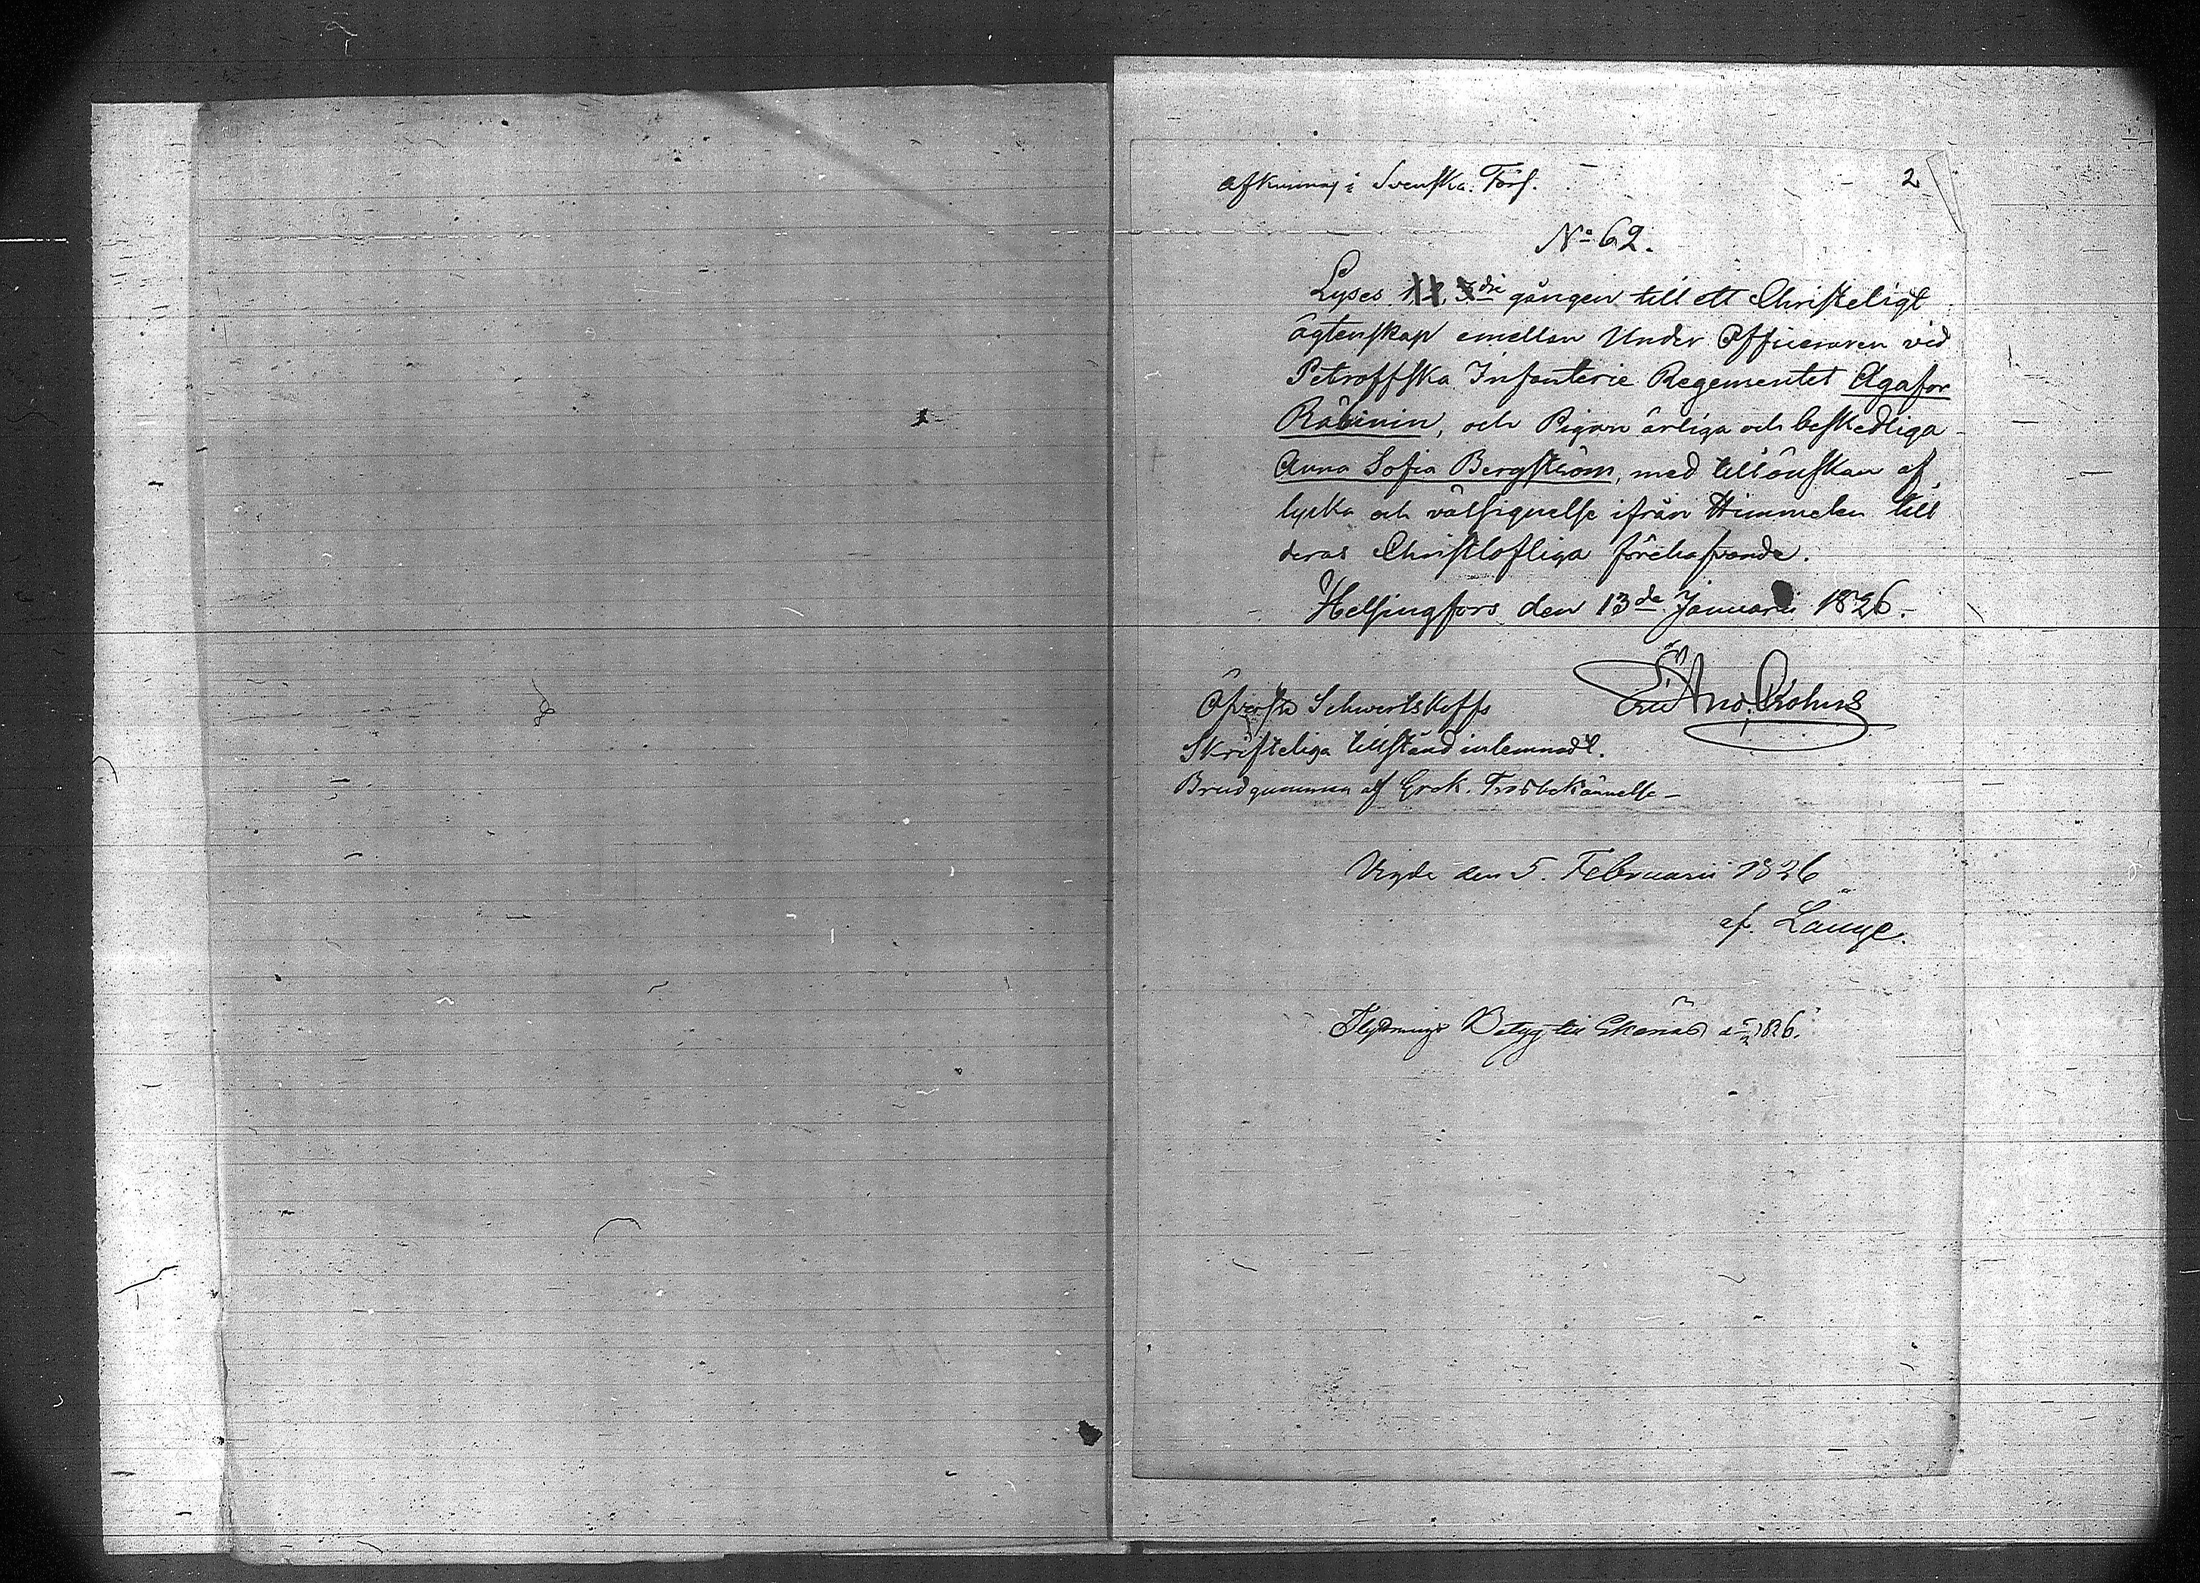 Afkunnas i Svenska Förs.
2
No 62.
Lyses 3die gången till ett Christeligt
ägtenskap emellan Under Officeraren vid
Petroffska Infanterie Regementet Agafon
Räbinin, och Pigan ärliga och beskedliga
Anna Sofia Bergström, med tillönskan af
lycka och välsignelse ifrån Himmelen till
deras Christlofliga förehafvande.
Helsingfors den 13de Januarii 1826.
Öfverste Schwertskoffs
Skrifteliga tillstånd inlemnadt.
Brudgummen af Grek. Trosbekännelse
Vigde den 5. Februarii 1826
af Lange.
Flyttnings Betyg till Ekenäs 1826.